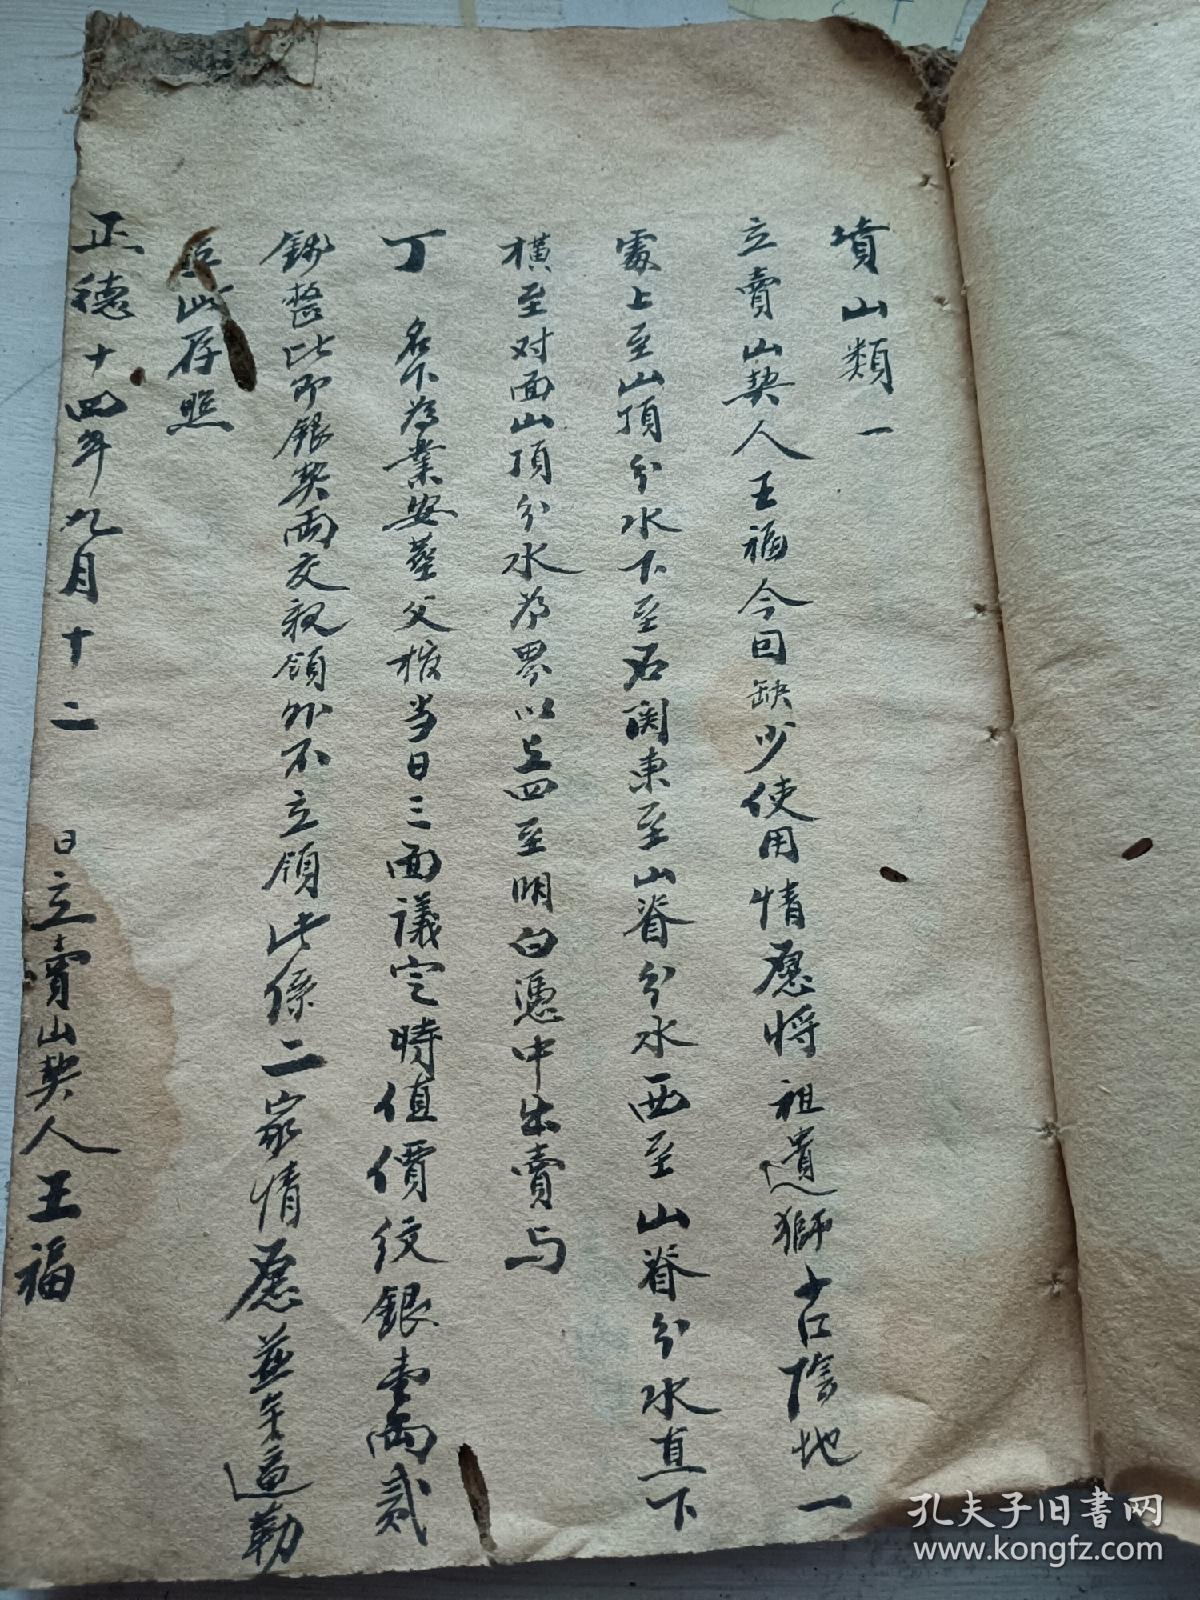 墳山類一
立賣山契人王福今因缺少使用情愿将祖遺獅古江陰地一
處上至山頂分水下至石関東至山脊分水西至山脊分水直下
橫至对面山頂分水為界以上四至明白憑中出賣与
丁 名下為業安葬父 当日三面議定時值價紋銀壹兩貳
錢整比即銀契兩交親領外不立領此係二家情愿並無逼勒
此存照
正德十四年九月十二 日立賣山契人王福
孔夫子旧书网
www.kongfz.com